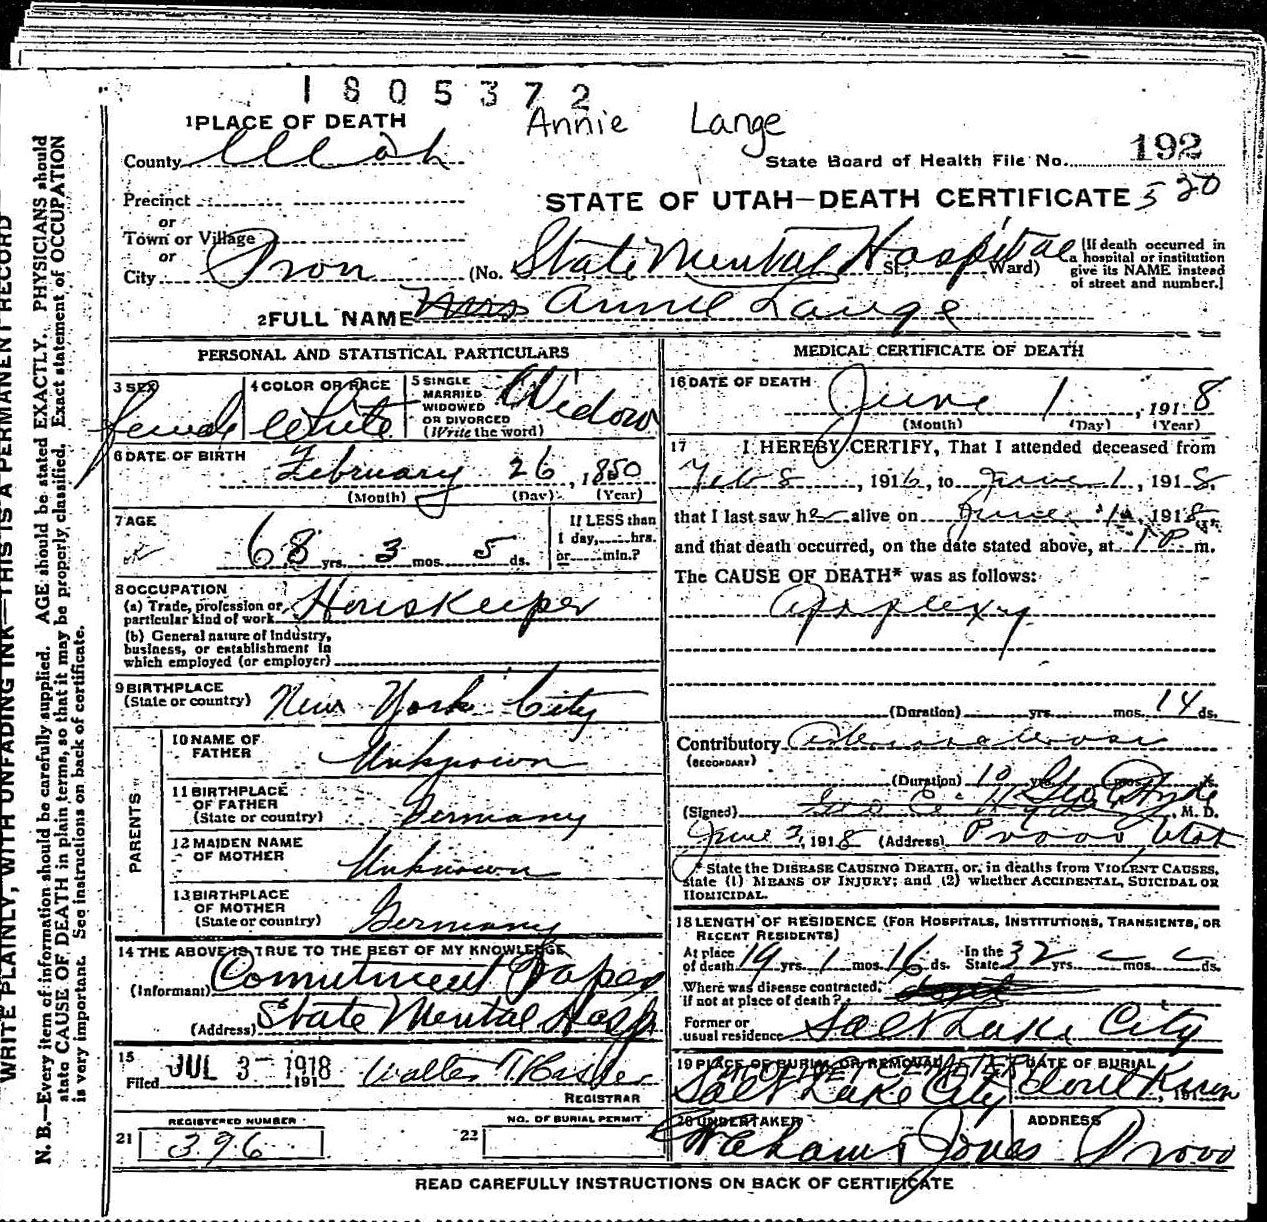 1805372
Annie Lange
1 PLACE OF DEATH
County Utah
State Board of Health File No. 192
Precinct
STATE OF UTAH—DEATH CERTIFICATE 520
or
Town or Village
or
City Provo (No. State Mental Hospital St.; Ward) [If death occurred in a hospital or institution give its NAME instead of street and number.]
2 FULL NAME Mrs Annie Lange
PERSONAL AND STATISTICAL PARTICULARS
3 SEX female
4 COLOR OR RACE White
5 SINGLE MARRIED WIDOWED OR DIVORCED (Write the word) Widow
6 DATE OF BIRTH February 26, 1850
(Month) (Day) (Year)
7 AGE 68 yrs. 3 mos. 5 ds.
If LESS than 1 day, hrs. or min.?
8 OCCUPATION
(a) Trade, profession or particular kind of work Houskeeper
(b) General nature of Industry, business, or establishment in which employed (or employer)
9 BIRTHPLACE (State or country) New York City
PARENTS
10 NAME OF FATHER Unknown
11 BIRTHPLACE OF FATHER (State or country) Germany
12 MAIDEN NAME OF MOTHER Unknown
13 BIRTHPLACE OF MOTHER (State or country) Germany
14 THE ABOVE IS TRUE TO THE BEST OF MY KNOWLEDGE
(Informant) Comitment Paper
(Address) State Mental Hosp
15 Filed JUL 3 - 1918 191 Walter T. Hasler
REGISTRAR
REGISTERED NUMBER
21 396
NO. OF BURIAL PERMIT
22
MEDICAL CERTIFICATE OF DEATH
16 DATE OF DEATH June 1, 1918
(Month) (Day) (Year)
17 I HEREBY CERTIFY, That I attended deceased from
Feb 8, 1916, to June 1, 1918,
that I last saw her alive on June 1, 1918,
and that death occurred, on the date stated above, at 1 P m.
The CAUSE OF DEATH* was as follows:
Apoplexy
(Duration) yrs. mos. 14 ds.
Contributory (SECONDARY)
(Duration) 10 yrs. mos.
(Signed) Geo E. Hyde M. D.
June 3, 1918 (Address) Provo, Utah
* State the DISEASE CAUSING DEATH, or, in deaths from VIOLENT CAUSES, state (1) MEANS OF INJURY; and (2) whether ACCIDENTAL, SUICIDAL OR HOMICIDAL.
18 LENGTH OF RESIDENCE (FOR HOSPITALS, INSTITUTIONS, TRANSIENTS, OR RECENT RESIDENTS)
At place of death 19 yrs. 1 mos. 16 ds. In the State 32 yrs. mos. ds.
Where was disease contracted, if not at place of death?
Former or usual residence Salt Lake City
19 PLACE OF BURIAL OR REMOVAL Salt Lake City
DATE OF BURIAL dont Know, 191
20 UNDERTAKER Graham & Jones
ADDRESS Provo
READ CAREFULLY INSTRUCTIONS ON BACK OF CERTIFICATE
WRITE PLAINLY, WITH UNFADING INK—THIS IS A PERMANENT RECORD
N. B.—Every item of information should be carefully supplied. AGE should be stated EXACTLY. PHYSICIANS should
state CAUSE OF DEATH in plain terms, so that it may be properly classified. Exact statement of OCCUPATION
is very important. See instructions on back of certificate.